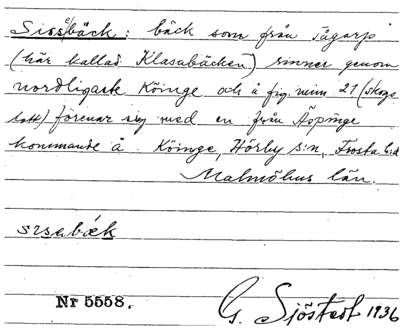 Sisåbäck: bäck som från Jägarp
(här kallad Klasabäcken) rinner genom
nordligaste Köinge och å fig. num. 21 (skogs
lott) förenar sig med en från Äspinge
kommande å. Köinge, Hörby s:n, Frosta h:d
Malmöhus län.
sɪsabɛk
Nr 5558. G. Sjöstedt 1936